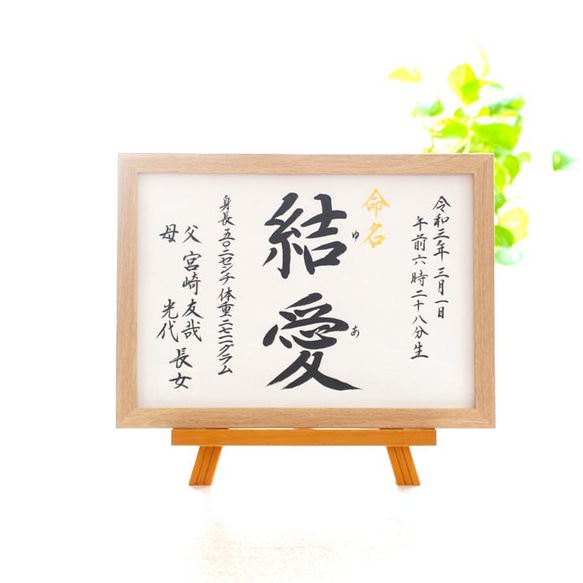 令和三年 三月一日
午前六時二十八分生
命名
結愛
ゆ
あ
身長 五〇センチ 体重 二七二一グラム
父 宮崎 友哉
母 光代
長女